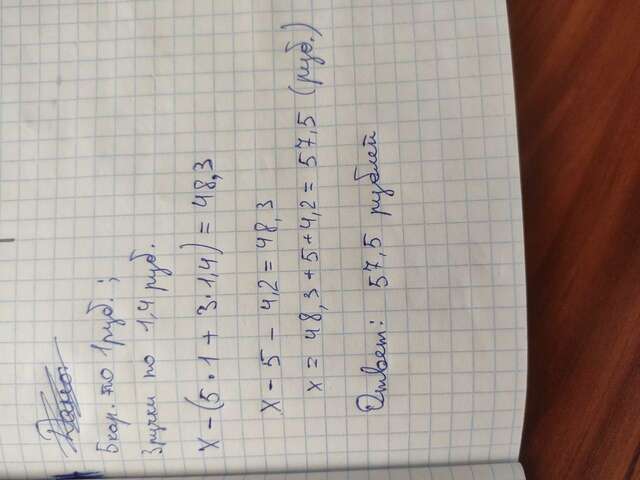 Дано:
5 кар. по 1 руб.;
3 ручки по 1,4 руб.
x - (5 · 1 + 3 · 1,4) = 48,3
x - 5 - 4,2 = 48,3
x = 48,3 + 5 + 4,2 = 57,5 (руб.)
Ответ: 57,5 рублей